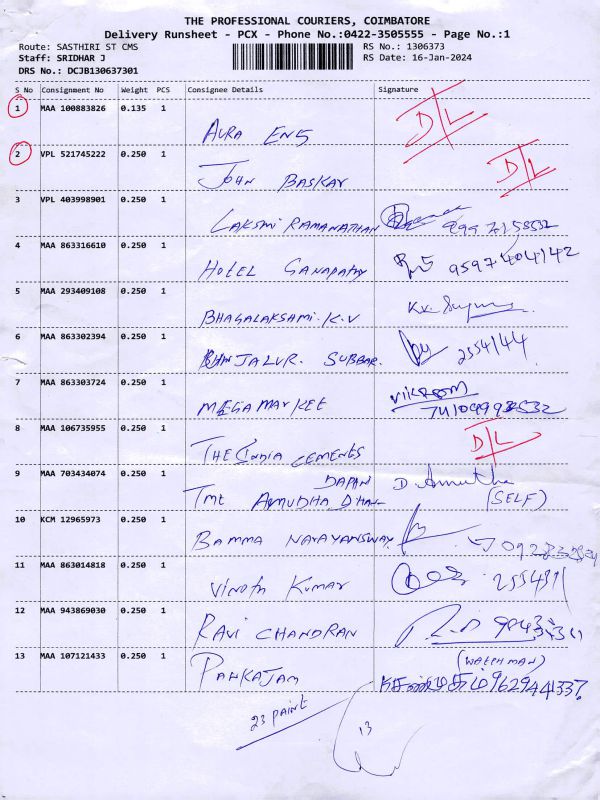 THE PROFESSIONAL COURIERS, COIMBATORE
Delivery Runsheet - PCX - Phone No.:0422-3505555 - Page No.:1
Route: SASTHIRI ST CMS RS No.: 1306373
Staff: SRIDHAR J RS Date: 16-Jan-2024
DRS No.: DCJB130637301
S No Consignment No Weight PCS Consignee Details Signature
1 MAA 100883826 0.135 1 AURA ENS D/L
2 VPL 521745222 0.250 1 JOHN BASKAR D/L
3 VPL 403998901 0.250 1 LAKSMI RAMANATHAN
4 MAA 863316610 0.250 1 HOTEL GANAPATHY 9597404142
5 MAA 293409108 0.250 1 BHAGALAKSHMI.K.V K.V.
6 MAA 863302394 0.250 1 SUBBAR. 2554144
7 MAA 863303724 0.250 1 MEGA MARKET VIKRAM
8 MAA 106735955 0.250 1 THE INDIA CEMENTS D/L
9 MAA 703434074 0.250 1 TMT AMUDHA DHAN DAPAN D. Amutha (SELF)
10 KCM 12965973 0.250 1 BAMMA NARAYANSWAY
11 MAA 863014818 0.250 1 VINOTH KUMAR
12 MAA 943869030 0.250 1 RAVI CHANDRAN
13 MAA 107121433 0.250 1 PANKAJAM (WATCH MAN) 9629441337
23 paint
13